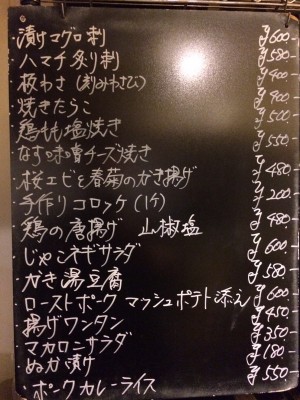 漬けマグロ刺 ¥600-
ハマチ炙り刺 ¥580-
板わさ(刻みわさび) ¥400-
焼きたらこ ¥400-
鶏もも塩焼き ¥500-
なす味噌チーズ焼き ¥550-
桜エビと春菊のかき揚げ ¥480-
手作りコロッケ(1ケ) ¥200-
鶏の唐揚げ 山椒塩 ¥480-
じゃこネギサラダ ¥600-
かき湯豆腐 ¥580-
ローストポーク マッシュポテト添え ¥600-
揚げワンタン ¥450-
マカロニサラダ ¥350-
ぬか漬け ¥180-
ポークカレーライス ¥550-